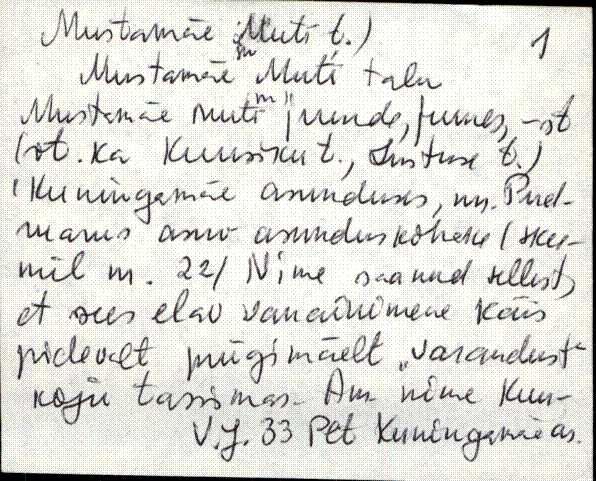 Mustamäe Muti t.)
1
Mustamäe Muti talu
Mustamäe Muti juude, juures, -st
(vt. ka Kuusiku t., t.)
Kuningamäe asunduses, nn. Pud-
asuv asunduskoheke (
m. 22/ Nime saanud sellest,
et sees elav vanainimene käis
pidevalt prügimäelt „varandust"
koju tassimas. Am. nime Kun-
V.J. 33 Pet Kuningamäe as.